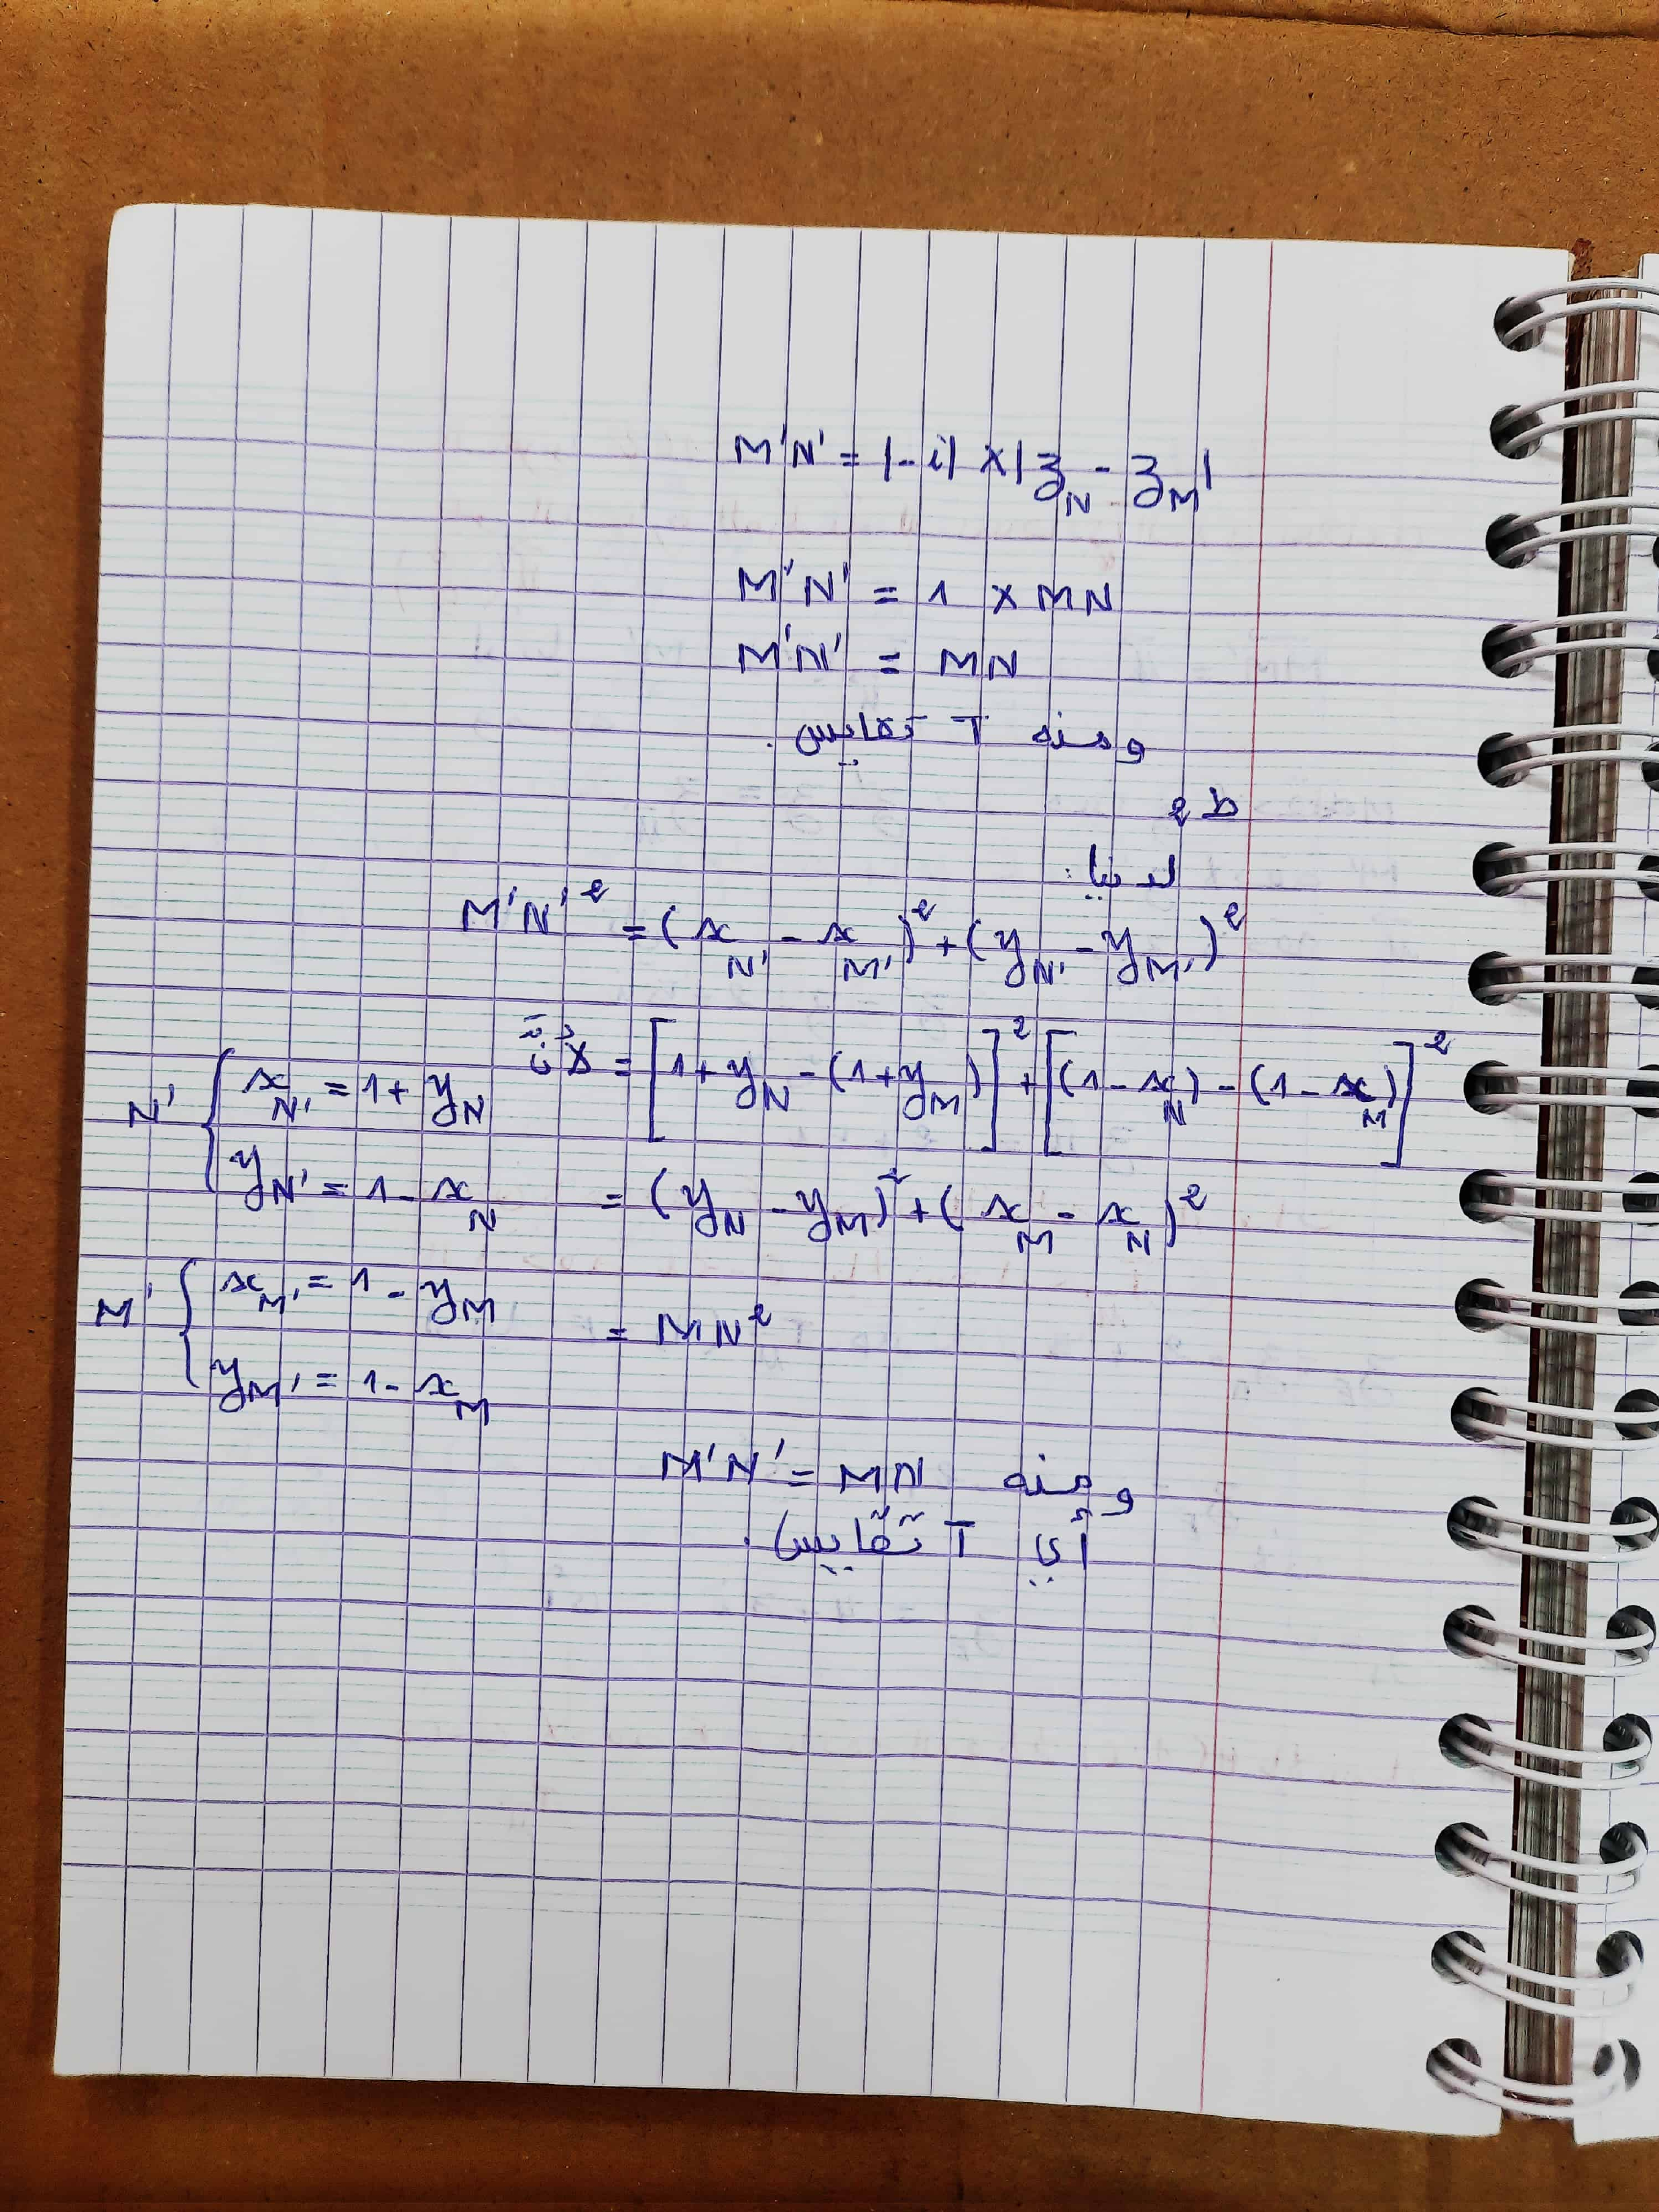 M'N' = |-i| × |z_N - z_M|
M'N' = 1 × MN
M'N' = MN
ومنه T تقايس.
ط 2
لدينا:
M'N'² = (x_N' - x_M')² + (y_N' - y_M')²
لأنّ = [1 + y_N - (1 + y_M)]² + [(1 - x_N) - (1 - x_M)]²
N' { x_N' = 1 + y_N
y_N' = 1 - x_N
= (y_N - y_M)² + (x_M - x_N)²
M' { x_M' = 1 - y_M
y_M' = 1 - x_M
= MN²
ومنه M'N' = MN
أي T تقايس.